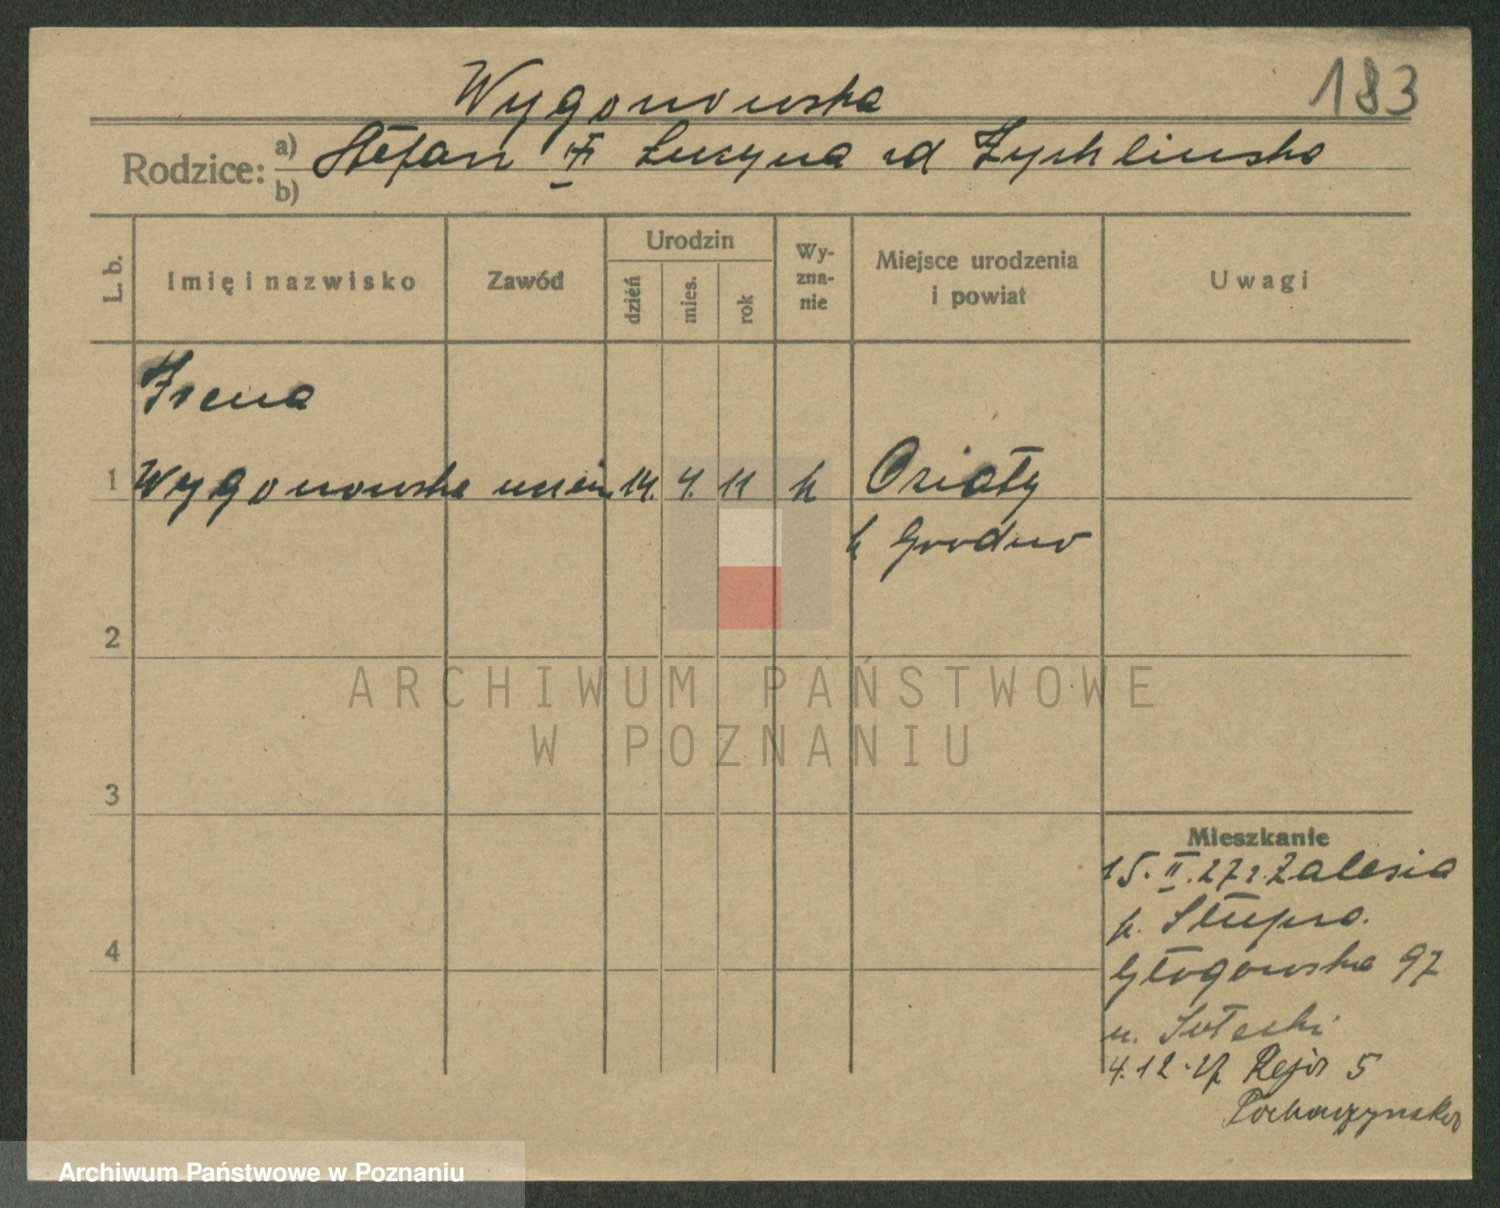 183
Wygonowska
Rodzice: a) Stefan † Lucyna zd Zychlinska
b)
L. b.
Imię i nazwisko
Zawód
Urodzin
dzień
mies.
rok
Wy-
zna-
nie
Miejsce urodzenia
i powiat
Uwagi
Irena
1 Wygonowska uczen. 14. 4. 11 k
p Grodno
2
3
4
Mieszkanie
15. II. 27 z. Zalesia
p.
Głogowska 97
u.
4.12.27 Reja 5
ARCHIWUM PAŃSTWOWE
W POZNANIU
Archiwum Państwowe w Poznaniu